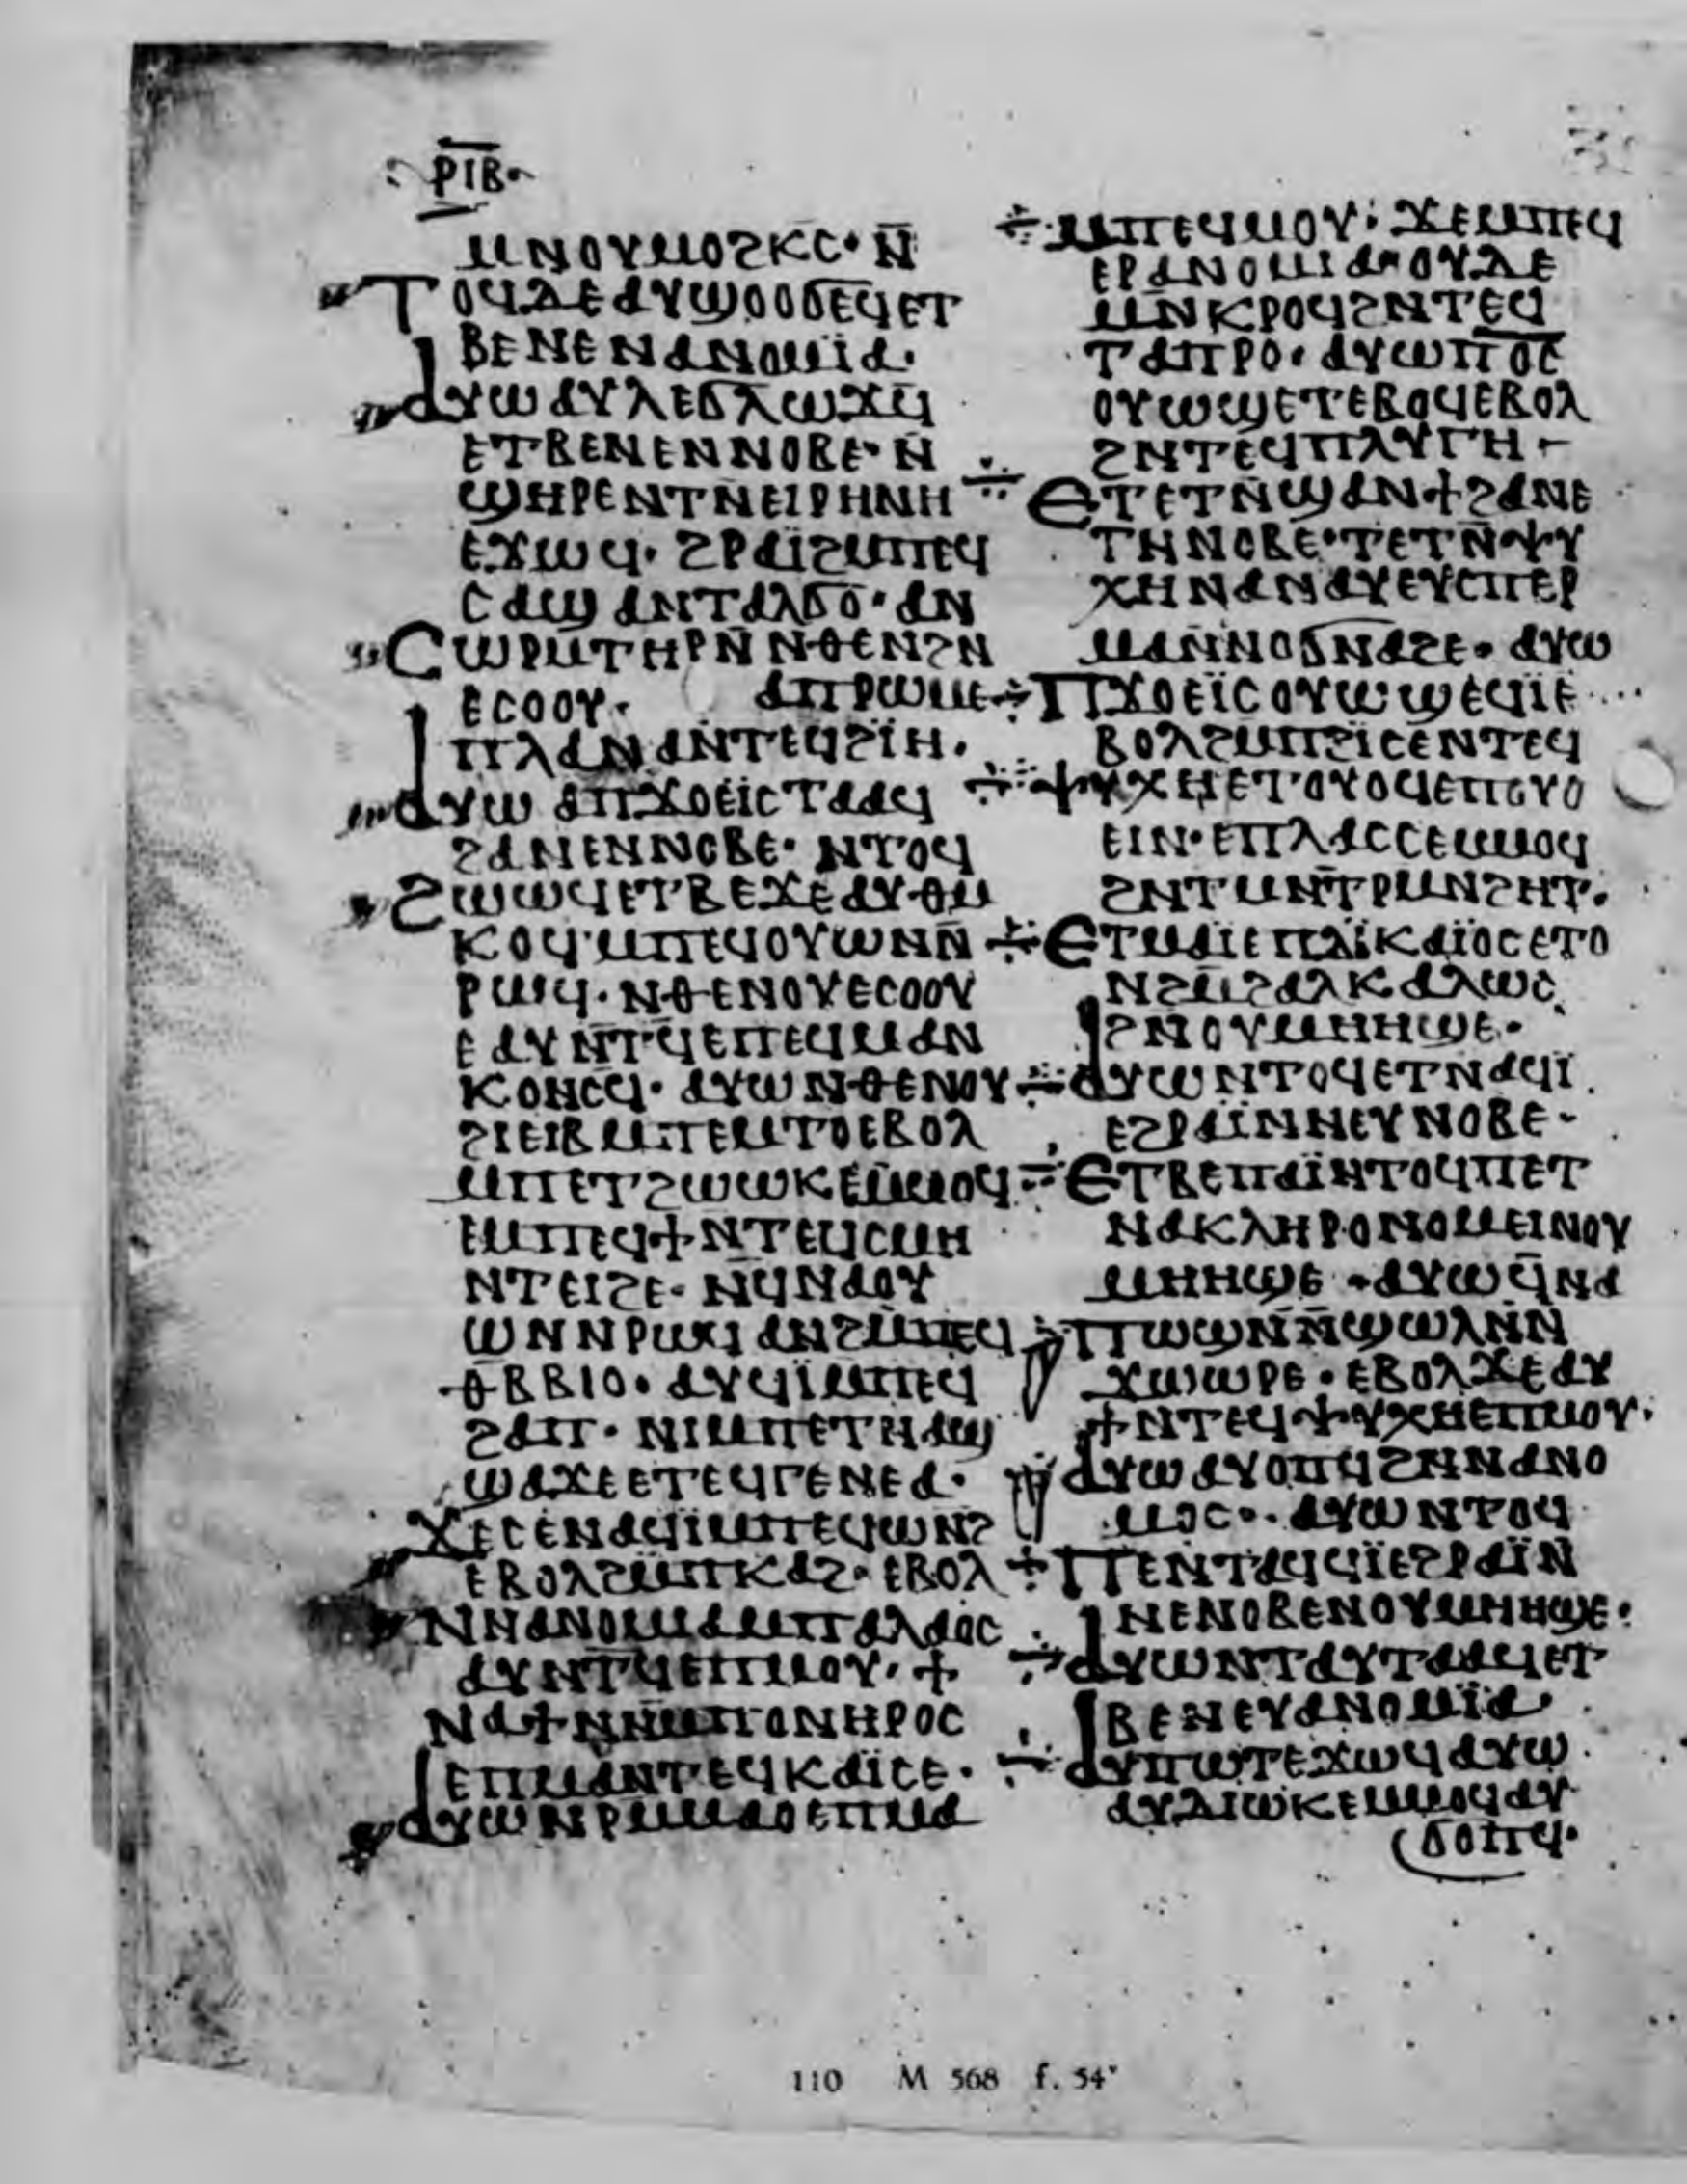 ⲣⲓⲃ
ⲙⲛⲟⲩⲙⲟⲕϩⲥ· ⲛ̄
ⲧⲟϥⲇⲉⲁⲩϣⲟⲟϭⲉϥⲉⲧ
ⲃⲉⲛⲉⲛⲁⲛⲟⲙⲓⲁ·
ⲁⲩⲱⲁⲩⲗⲉϭⲗⲱϫϥ̄
ⲉⲧⲃⲉⲛⲉⲛⲛⲟⲃⲉ· ⲛ̄
ϣⲏⲣⲉⲛⲧⲛ̄ⲉⲓⲣⲏⲛⲏ
ⲉϫⲱϥ· ϩⲣⲁⲓ̈ϩⲙⲡⲉϥ
ⲥⲁϣ ⲁⲛⲧⲁⲗϭⲟ· ⲁⲛ
ⲥⲱⲣⲙⲧⲏⲣⲛ̄ ⲛⲑⲉⲛϩⲛ
ⲉⲥⲟⲟⲩ· ⲁⲡⲣⲱⲙⲉ
ⲡⲗⲁⲛⲁⲛⲧⲉϥϩⲓ̈ⲏ·
ⲁⲩⲱ ⲁⲡϫⲟⲉⲓⲥⲧⲁⲁϥ
ϩⲁⲛⲉⲛⲛⲟⲃⲉ· ⲛⲧⲟϥ
ϩⲱⲱϥⲉⲧⲃⲉϫⲉⲁⲩⲑⲙ
ⲕⲟϥ·ⲙⲡⲉϥⲟⲩⲱⲛⲛ̄
ⲣⲱϥ· ⲛⲑⲉⲛⲟⲩⲉⲥⲟⲟⲩ
ⲉⲁⲩⲛ̄ⲧϥⲉⲡⲉϥⲙⲁⲛ
ⲕⲟⲛⲥϥ· ⲁⲩⲱⲛⲑⲉⲛⲟⲩ
ϩⲓⲉⲓⲃⲙⲡⲉⲙⲧⲟⲉⲃⲟⲗ
ⲙⲡⲉⲧϩⲱⲱⲕⲉⲙ̄ⲙⲟϥ
ⲉⲙⲡⲉϥϯⲛ̄ⲧⲉϥⲥⲙⲏ
ⲛⲧⲉⲓϩⲉ· ⲛ̄ϥⲛⲁⲟⲩ
ⲱⲛⲛⲣⲱϥ ⲁⲛϩⲙ̄ⲡⲉϥ
ⲑⲃⲃⲓⲟ· ⲁⲩϥⲓ̈ⲙⲡⲉϥ
ϩⲁⲡ· ⲛⲓⲙⲡⲉⲧⲛⲁϣ
ϣⲁϫⲉⲉⲧⲉϥⲅⲉⲛⲉⲁ·
ϫⲉⲥⲉⲛⲁϥⲓⲙⲡⲉϥⲱⲛϩ
ⲉⲃⲟⲗϩⲙ̄ⲡⲕⲁϩ· ⲉⲃⲟⲗ
ⲛⲛⲁⲛⲟⲙⲓⲁⲙⲡⲁⲗⲁⲟⲥ
ⲁⲩⲛⲧϥ̄ⲉⲡⲙⲟⲩ· ϯ
ⲛⲁϯⲛⲙ̄ⲡⲟⲛⲏⲣⲟⲥ
ⲉⲡⲙⲁⲛⲧⲉϥⲕⲁⲓ̈ⲥⲉ·
ⲁⲩⲱⲛⲣⲙⲙⲁⲟⲉⲡⲙⲁ
ⲙⲡⲉϥⲙⲟⲩ: ϫⲉⲙⲡⲉϥ
ⲉⲣⲁⲛⲟⲙⲓⲁⲛⲟⲩⲇⲉ
ⲙⲛⲕⲣⲟϥϩⲛⲧⲉϥ
ⲧⲁⲡⲣⲟ· ⲁⲩⲱⲡϭⲥ̄
ⲟⲩⲱϣⲉⲧⲉⲃⲟϥⲉⲃⲟⲗ
ϩⲛⲧⲉϥⲡⲗⲩⲅⲏ·
ⲉⲧⲉⲧⲛ̄ϣⲁⲛϯϩⲁⲛⲉ
ⲧⲏⲛⲟⲃⲉ·ⲧⲉⲧⲛ̄ⲯⲩ
ⲭⲏⲛⲁⲛⲁⲩⲉⲩⲥⲡⲉⲣ
ⲙⲁⲛ̄ⲛⲟϭⲛⲁϩⲉ· ⲁⲩⲱ
ⲡϫⲟⲉⲓ̈ⲥⲟⲩⲱϣⲉϥⲓⲉ
ⲃⲟⲗϩⲙⲡϩⲓ̈ⲥⲉⲛⲧⲉϥ
ⲯⲩⲭⲏⲉⲧⲟⲩⲟϥⲉⲡⲟⲩⲟ
ⲉⲓⲛ·ⲉⲡⲗⲁⲥⲥⲉⲙⲙⲟϥ
ϩⲛⲧⲙⲛ̄ⲧⲣⲙⲛϩⲏⲧ·
ⲉⲧⲙⲁⲓ̈ⲉⲡⲇⲓ̈ⲕⲁⲓ̈ⲟⲥⲉⲧⲟ
ⲛϩⲙ̄ϩⲁⲗⲕⲁⲗⲱⲥ
ϩⲛⲟⲩⲙⲏⲏϣⲉ·
ⲁⲩⲱⲛⲧⲟϥⲉⲧⲛⲁϥⲓ
ⲉϩⲣⲁⲓ̈ⲛⲛⲉⲩⲛⲟⲃⲉ·
ⲉⲧⲃⲉⲡⲁⲓ̈ⲛⲧⲟϥⲡⲉⲧ
ⲛⲁⲕⲗⲏⲣⲟⲛⲟⲙⲉⲓⲛⲟⲩ
ⲙⲏⲏϣⲉ·ⲁⲩⲱϥ̄ⲛⲁ
ⲡⲱϣⲛ̄ⲛ̄ϣⲱⲗⲛ̄ⲛ
ϫⲱⲱⲣⲉ·ⲉⲃⲟⲗϫⲉⲁⲩ
ϯⲛⲧⲉϥⲯⲩⲭⲏⲉⲡⲙⲟⲩ·
ⲁⲩⲱⲁⲩⲟⲡϥϩⲛ̄ⲛⲁⲛⲟ
ⲙⲟⲥ·· ⲁⲩⲱⲛⲧⲟϥ
ⲡⲉⲛⲧⲁϥϥⲓ̈ⲉϩⲣⲁⲓ̈ⲛ
ⲛⲉⲛⲟⲃⲉⲛⲟⲩⲙⲏⲏϣⲉ·
ⲁⲩⲱⲛⲧⲁⲩⲧⲁⲁϥⲉⲧ
ⲃⲉⲛⲉⲩⲁⲛⲟⲙⲓ̈ⲁ
ⲁⲩⲡⲱⲧⲉϫⲱϥⲁⲩⲱ
ⲁⲩⲇⲓⲱⲕⲉⲙⲙⲟϥⲁⲩ
ϭⲟⲡϥ·
110 M 568 f. 54ᵛ